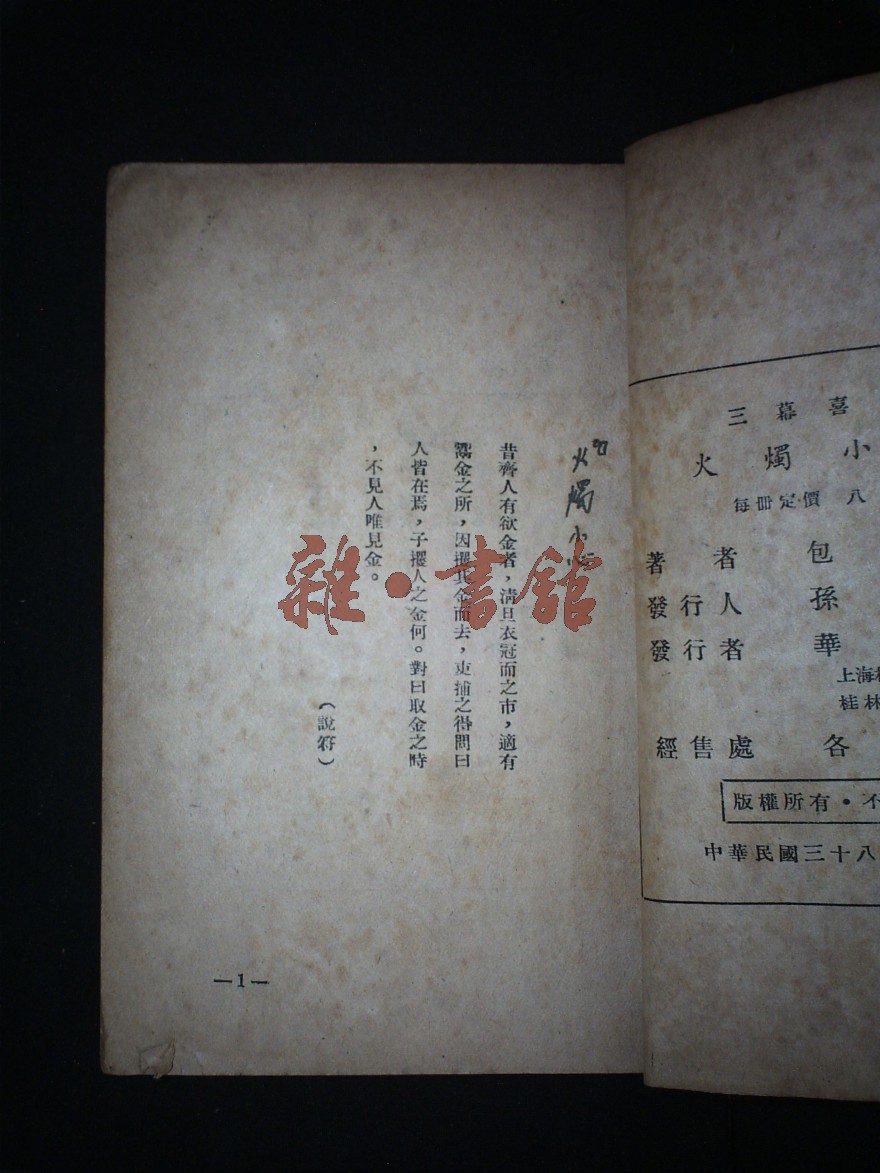 昔齊人有欲金者，淸旦衣冠而之市，適有
鬻金之所，因攫其金而去，吏捕之得問曰
人皆在焉，子攫人之金何。對曰取金之時
，不見人唯見金。
（說符）
—1—
火燭小
雜·書館
三幕喜
火燭小
每冊定價 八
著者 包
發行人 孫
發行者 華
上海
桂林
經售處 各
版權所有·不
中華民國三十八